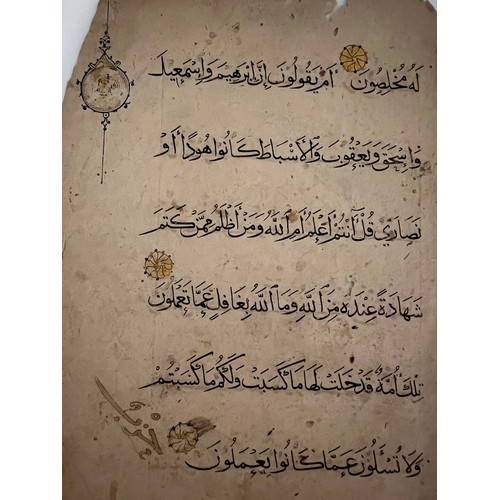 لَهُ مُخْلِصُونَ أَمْ يَقُولُونَ إِنَّ إِبْرَهِيمَ وَإِسْمَعِيلَ
وَإِسْحَقَ وَيَعْقُوبَ وَالْأَسْبَاطَ كَانُوا هُودًا أَوْ
نَصَارَى قُلْ أَأَنْتُمْ أَعْلَمُ أَمِ اللَّهُ وَمَنْ أَظْلَمُ مِمَّنْ كَتَمَ
شَهَادَةً عِنْدَهُ مِنَ اللَّهِ وَمَا اللَّهُ بِغَافِلٍ عَمَّا تَعْمَلُونَ
تِلْكَ أُمَّةٌ قَدْ خَلَتْ لَهَا مَا كَسَبَتْ وَلَكُمْ مَا كَسَبْتُمْ
وَلَا تُسْئَلُونَ عَمَّا كَانُوا يَعْمَلُونَ